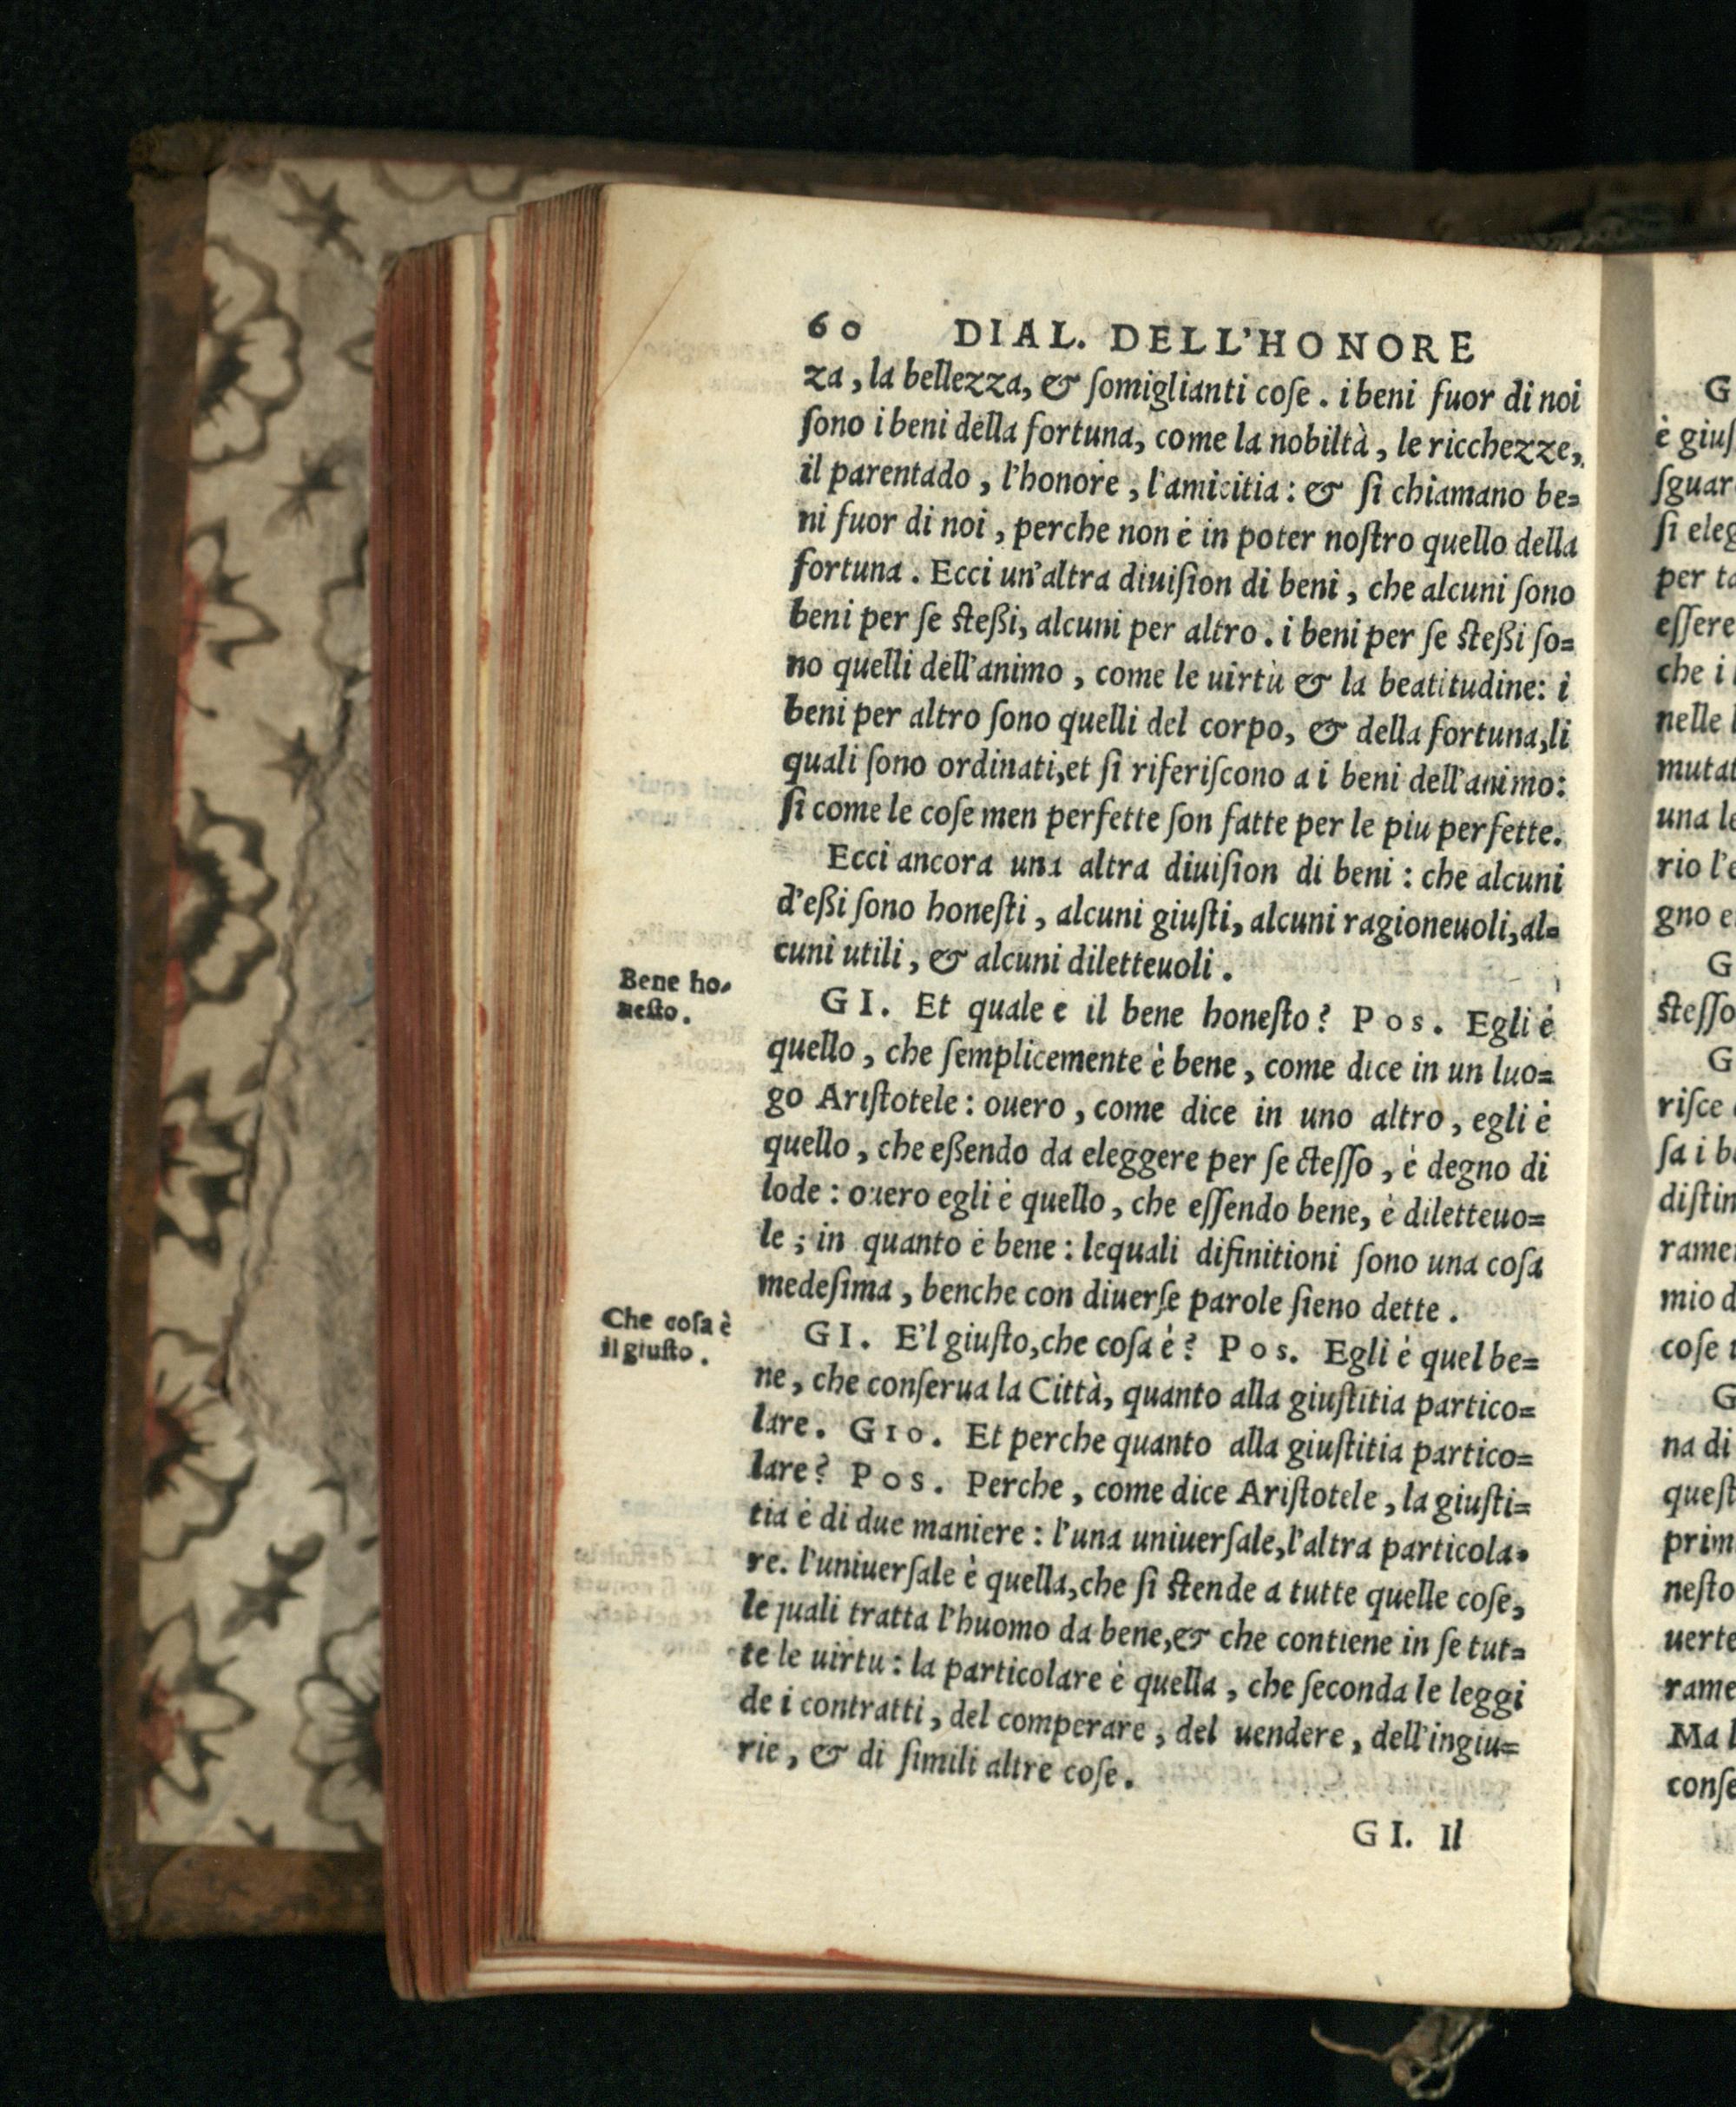 60 DIAL. DELL'HONORE
za, la bellezza, & ſomiglianti coſe. i beni fuor di noi
ſono i beni della fortuna, come la nobiltà, le ricchezze,
il parentado, l'honore, l'amicitia: & ſi chiamano be=
ni fuor di noi, perche non è in poter noſtro quello della
fortuna. Ecci un'altra diuiſion di beni, che alcuni ſono
beni per ſe ſteßi, alcuni per altro. i beni per ſe ſteßi ſo=
no quelli dell'animo, come le uirtù & la beatitudine: i
beni per altro ſono quelli del corpo, & della fortuna, li
quali ſono ordinati, et ſi riferiſcono a i beni dell'animo:
ſi come le coſe men perfette ſon fatte per le piu perfette.
Ecci ancora una altra diuiſion di beni: che alcuni
d'eßi ſono honeſti, alcuni giuſti, alcuni ragioneuoli, al=
cuni utili, & alcuni diletteuoli.
Bene ho-
neſto.
GI. Et quale e il bene honeſto? Pos. Egli è
quello, che ſemplicemente è bene, come dice in un luo=
go Ariſtotele: ouero, come dice in uno altro, egli è
quello, che eßendo da eleggere per ſe ſteſſo, è degno di
lode: ouero egli è quello, che eſſendo bene, è diletteuo=
le; in quanto è bene: lequali difinitioni ſono una coſa
medeſima, benche con diuerſe parole ſieno dette.
Che coſa è
il giuſto.
GI. E'l giuſto, che coſa è? Pos. Egli è quel be=
ne, che conſerua la Città, quanto alla giuſtitia partico=
lare. Gio. Et perche quanto alla giuſtitia partico=
lare? Pos. Perche, come dice Ariſtotele, la giuſti=
tia è di due maniere: l'una uniuerſale, l'altra particola-
re. l'uniuerſale è quella, che ſi ſtende a tutte quelle coſe,
le quali tratta l'huomo da bene, & che contiene in ſe tut=
te le uirtu: la particolare è quella, che ſeconda le leggi
de i contratti, del comperare, del uendere, dell'ingiu=
rie, & di ſimili altre coſe.
GI. Il
G
è giuſ
ſguar
ſi eleg
per ta
eſſere
che i
nelle
mutat
una le
rio l'e
gno e
G
ſteſſo
G
riſce
ſa i b
diſtin
rame
mio d
coſe
G
na di
queſt
prim
neſto
uerte
rame
Ma l
conſe